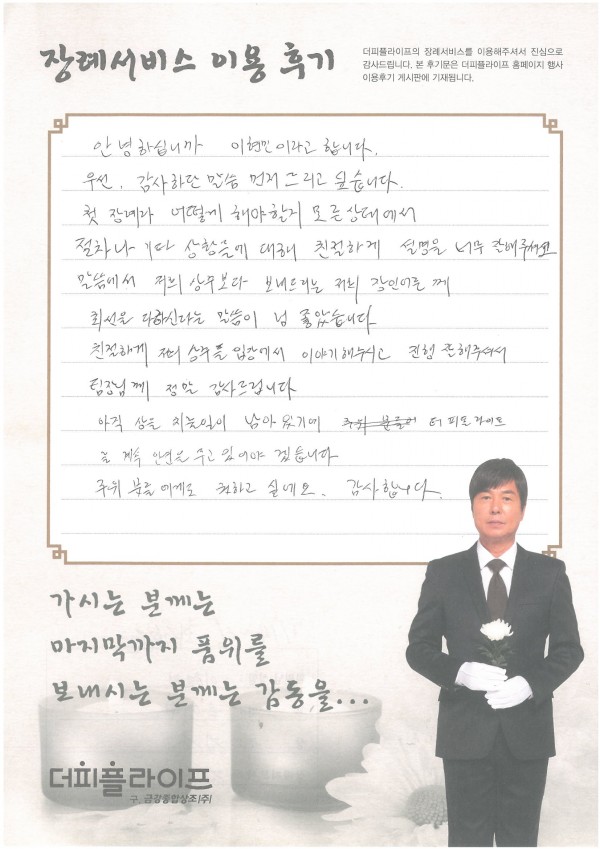 장례서비스 이용 후기
더피플라이프의 장례서비스를 이용해주셔서 진심으로
감사드립니다. 본 후기문은 더피플라이프 홈페이지 행사
이용후기 게시판에 기재됩니다.
안녕하십니까 이현민이라고 합니다.
우선, 감사하단 말씀 먼저 드리고 싶습니다.
첫 장례라 어떻게 해야할지 모른상태에서
절차나 기타 상황들에 대해 친절하게 설명을 너무 잘해주셨고
말씀에서 저희 상주보다 보내드리는 저희 고인어른께
최선을 다하신다는 말씀이 넘 좋았습니다
친절하게 저희 상주들 입장에서 이야기해주시고 진행 잘해주셔서
팀장님께 정말 감사드립니다
아직 상을 치를일이 남아 있기에 더피플라이프
를 계속 인연을 두고 있어야 겠습니다
주위 분들에게도 권하고 싶네요. 감사합니다.
가시는 분께는
마지막까지 품위를
보내시는 분께는 감동을...
더피플라이프
구. 금강종합상조(주)